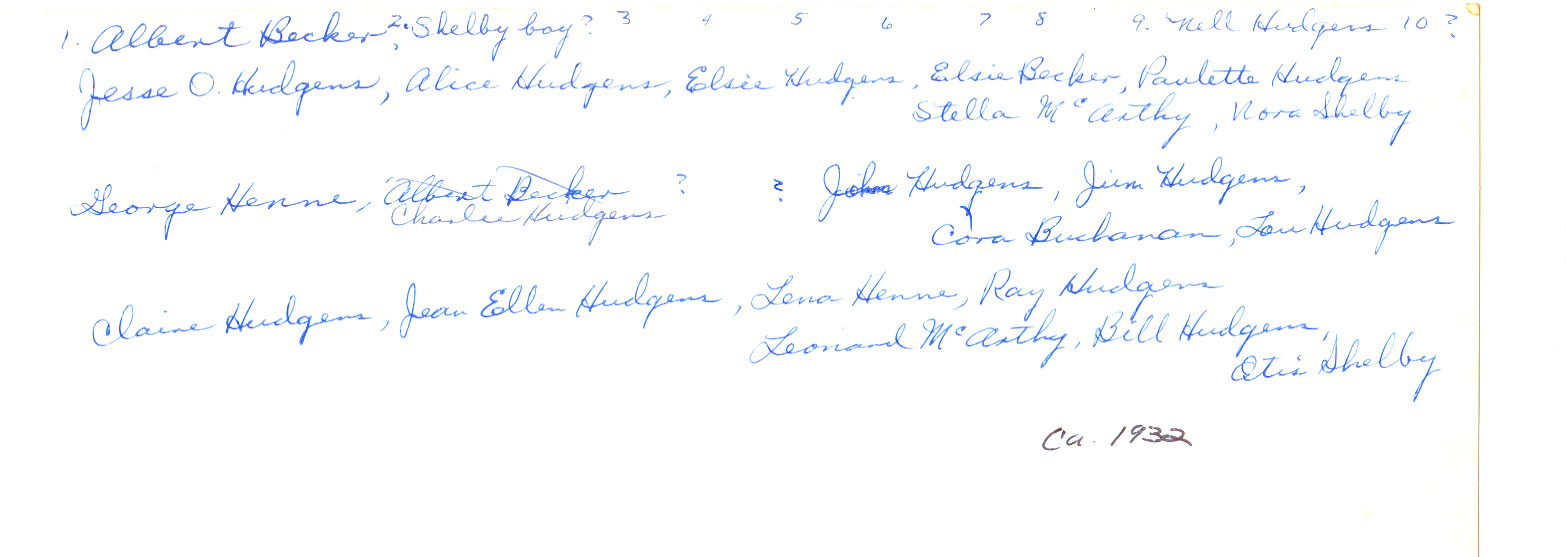 1. Albert Becker 2. Shelby boy? 3 4 5 6 7 8 9. Nell Hudgens 10 ?
Jesse O. Hudgens, Alice Hudgens, Elsie Hudgens, Elsie Becker, Paulette Hudgens
Stella McArthy, Nora Shelby
George Henne, Albert Becker ? ? John Hudgens, Jim Hudgens,
Charlie Hudgens
Cora Buchanan, Lou Hudgens
Claire Hudgens, Jean Ellen Hudgens, Lena Henne, Ray Hudgens
Leonard McArthy, Bill Hudgens,
Otis Shelby
Ca. 1932